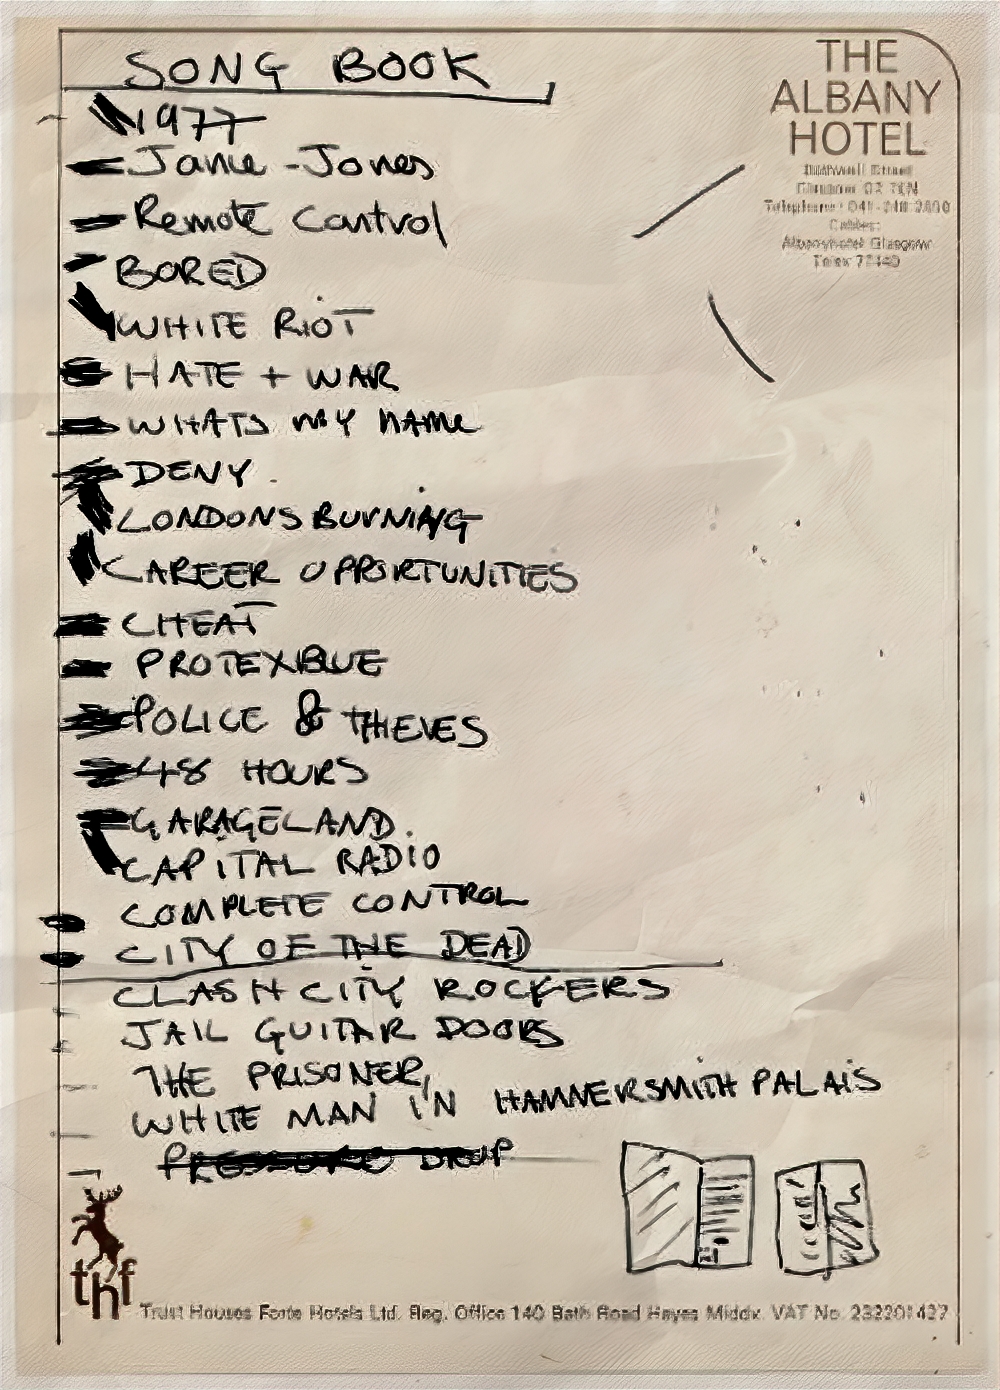 SONG BOOK
THE
ALBANY
HOTEL
Glasgow G2 7EN
Telephone: 041-248 2656
Cables:
Albanyhotel Glasgow
Telex 77440
1977
Janie-Jones
Remote Control
BORED
WHITE RIOT
HATE + WAR
WHATS MY NAME
DENY.
LONDONS BURNING
CAREER OPPORTUNITIES
CHEAT
PROTEXBLUE
POLICE & THIEVES
48 HOURS
GARAGELAND.
CAPITAL RADIO
COMPLETE CONTROL
CITY OF THE DEAD
CLASH CITY ROCKERS
JAIL GUITAR DOORS
THE PRISONER,
WHITE MAN IN HAMMERSMITH PALAIS
PRESSURE DROP
thf
Trust Houses Forte Hotels Ltd. Reg. Office 140 Bath Road Hayes Middx. VAT No. 232201427